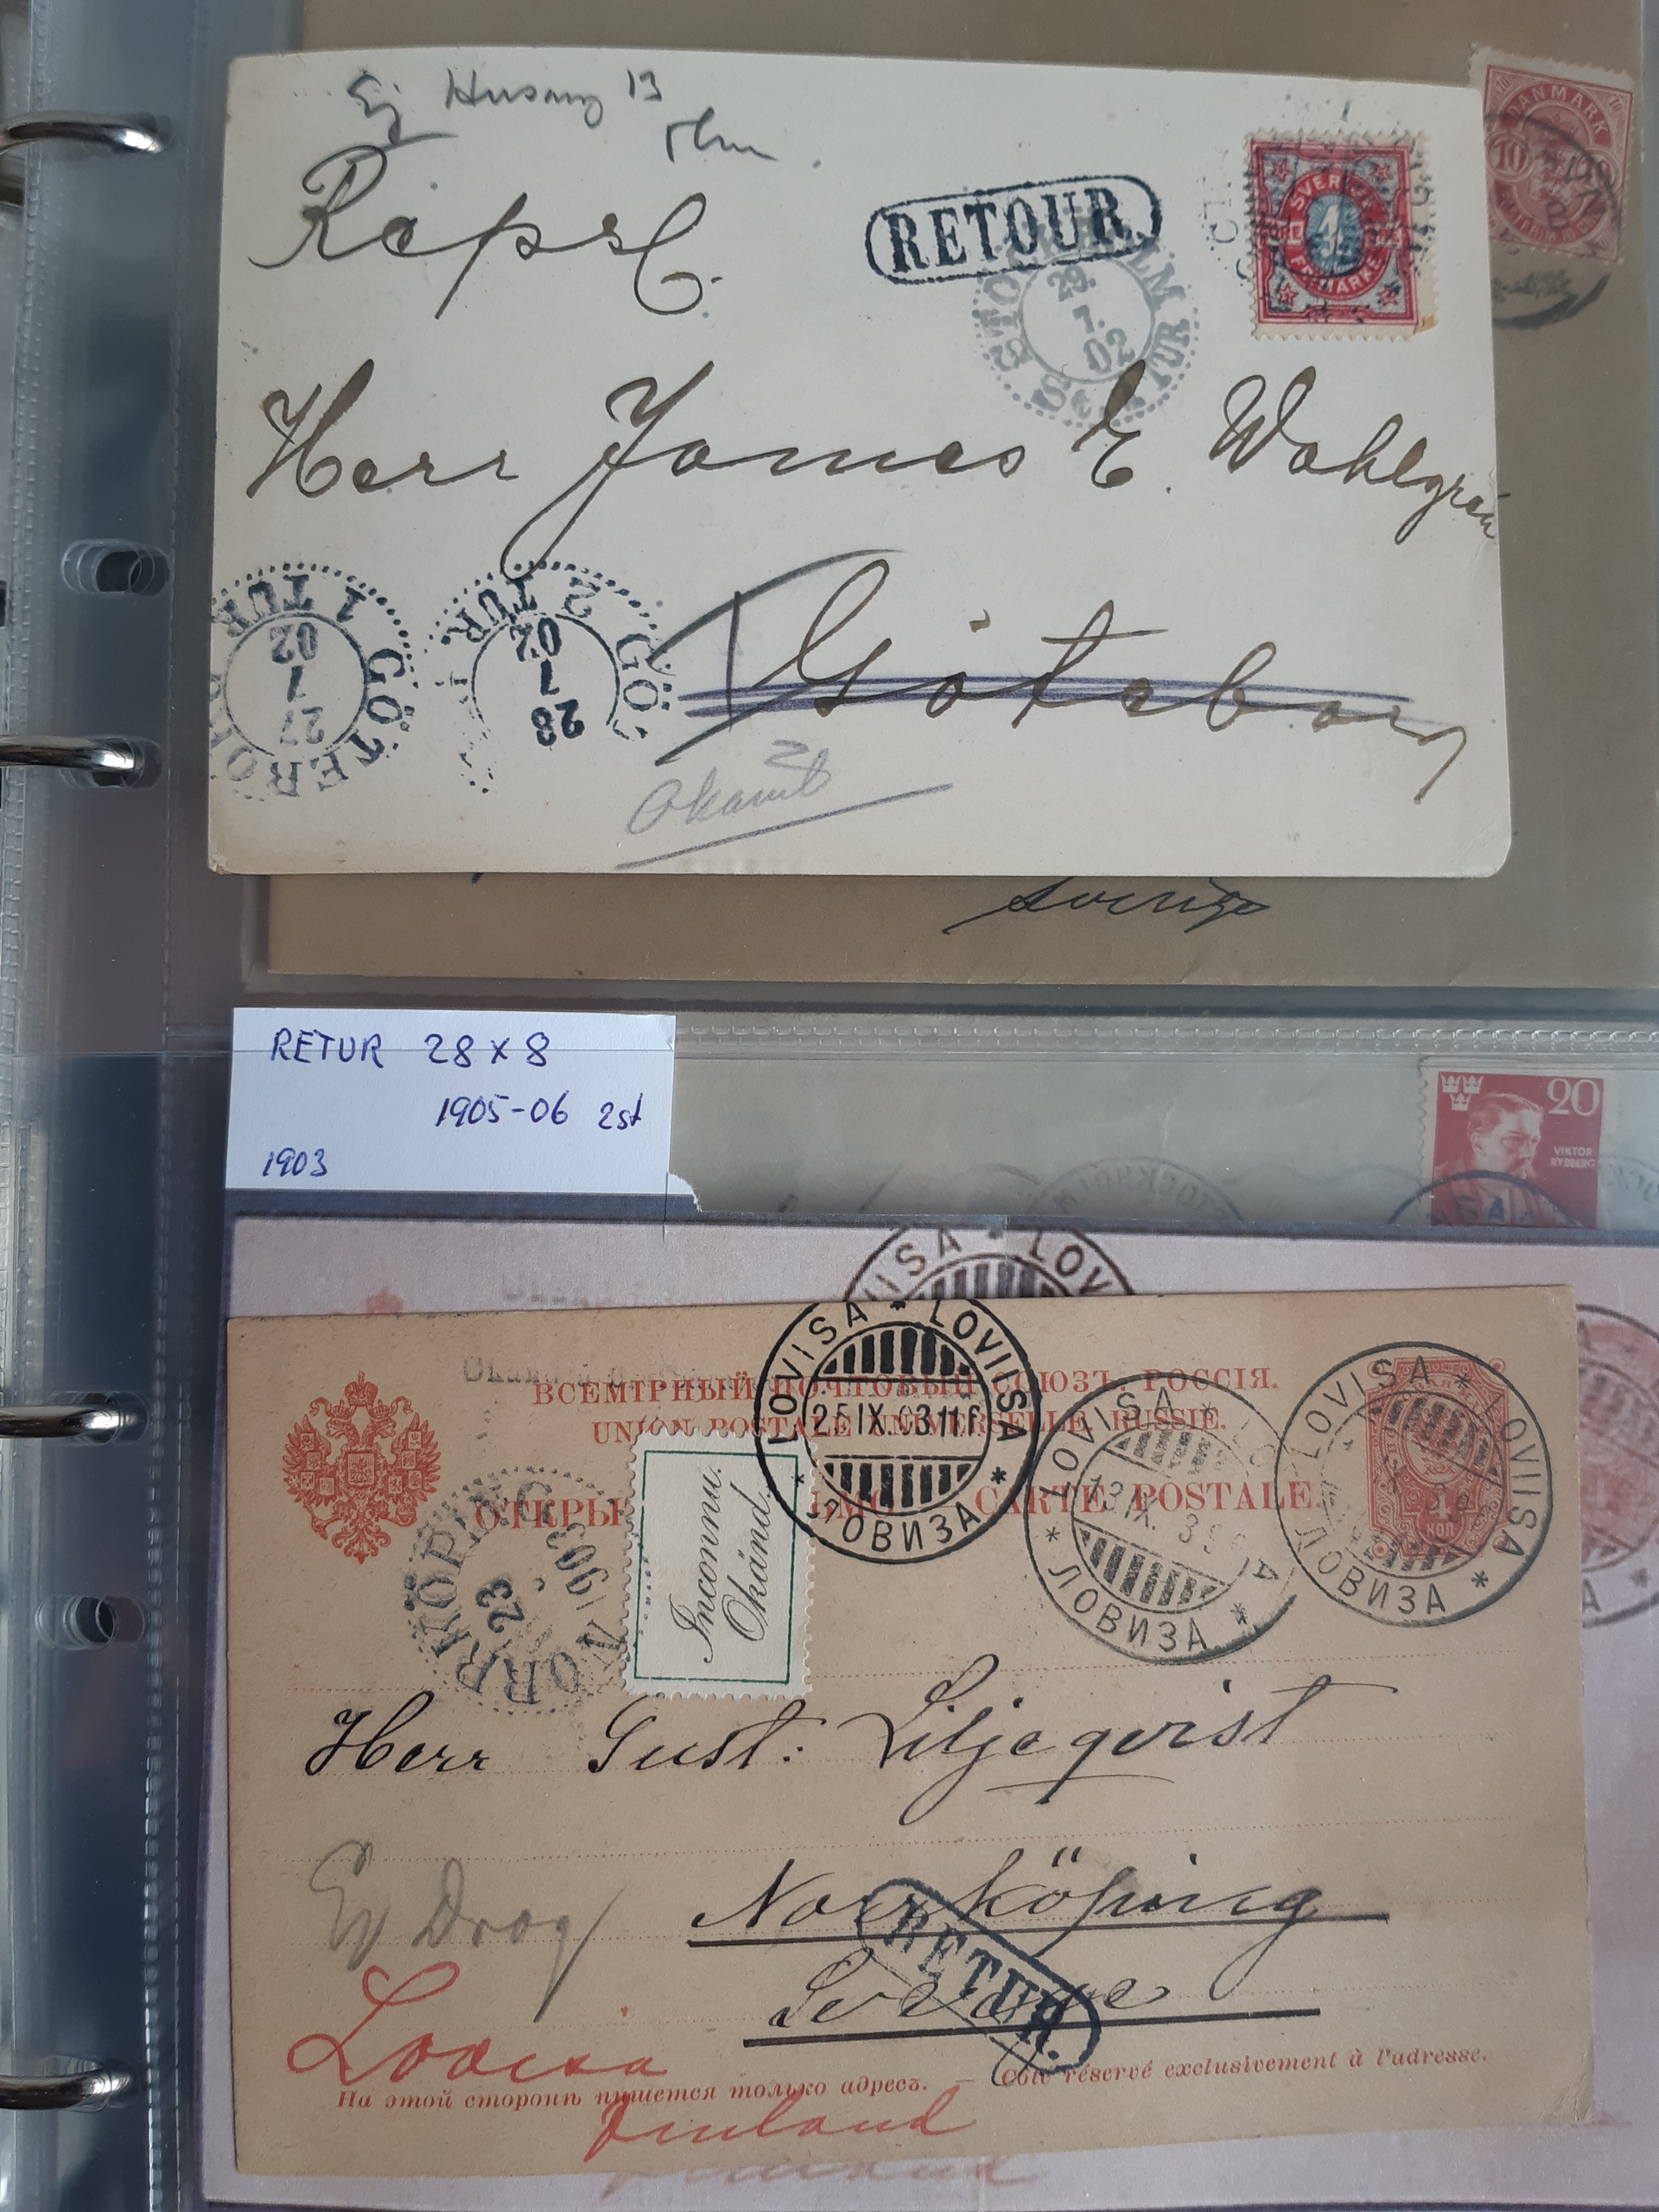 Ej Husarg 13
Repr
RETOUR.
SVERIGE
FRIMÄRKE
DANMARK
10
STOCKHOLM
29.
7.
02
TUR
Herr James E. Wahlgren
GÖTEBORG
27
7
02
1 TUR
GÖ
28
7
02
2 TUR
Göteborg
Okänd
Sverige
RETUR 28 x 8
1905-06 2st
1903
20
VIKTOR
RYDBERG
LOVIISA * LOV
ВСЕМІРНЫЙ ПОЧТОВЫЙ СОЮЗЪ. РОССІЯ.
UNION POSTALE UNIVERSELLE. RUSSIE.
CARTE POSTALE.
LOVISA * LOVIISA
25.IX.03.11
* ЛОВИЗА *
LOVISA
13.IX.
* ЛОВИЗА *
LOVISA * LOVIISA
ЛОВИЗА *
4
КОП
NORRKÖPING
23
1903
Inconnu.
Okänd.
Herr Gust: Liljeqvist
Norrköping
Ev Drag
Sverige
RETUR.
Lovisa
На этой сторонѣ пишется только адресъ. — Côté réservé exclusivement à l'adresse.
Finland